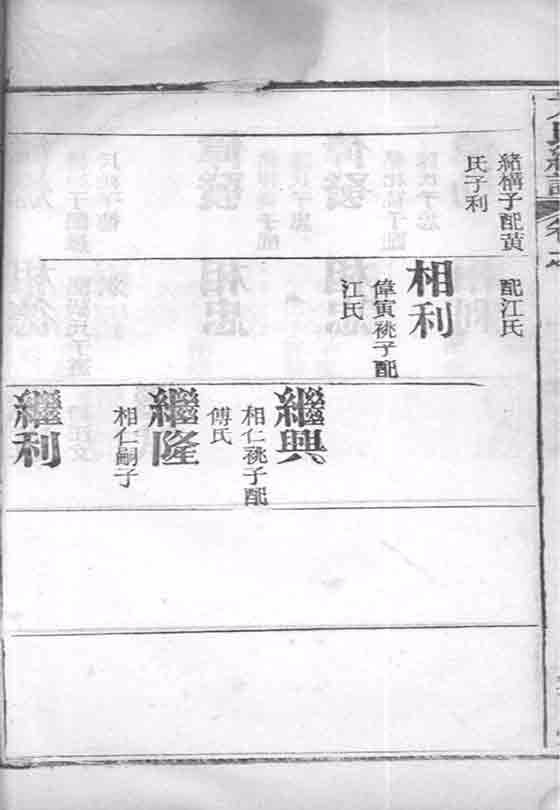 緒構子配黃
氏子利
配江氏
相利
偉寅祧子配
江氏
繼興
相仁祧子配
傅氏
繼隆
相仁嗣子
繼利